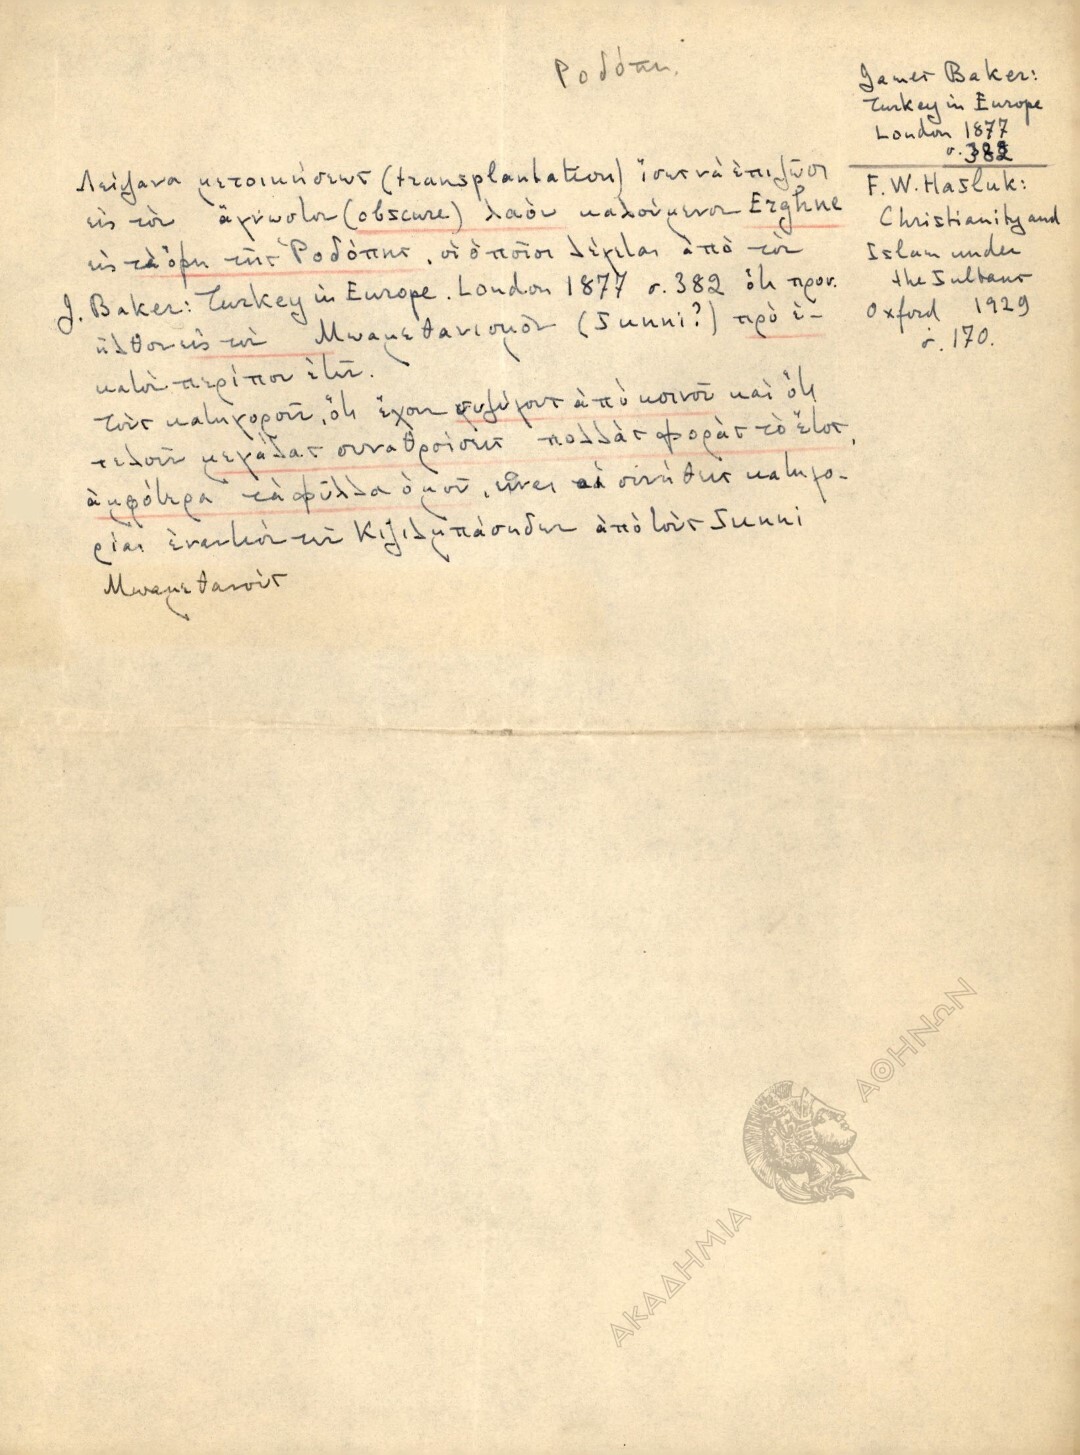 Ροδόπη.
James Baker:
Turkey in Europe
London 1877
σ. 382
F. W. Hasluk:
Christianity and
Islam under
the Sultans
Oxford 1929
σ. 170.
Λείψανα μετοικήσεως (transplantation) ἴσως νὰ ἐπιζῶσι
εἰς τὸν ἄγνωστον (obscure) λαὸν καλούμενον Erghne
εἰς τὰ ὄρη τῆς Ροδόπης, οἱ ὁποῖοι λέγεται ἀπὸ τὸν
J. Baker: Turkey in Europe. London 1877 σ. 382 ὅτι προσ.
ῆλθον εἰς τὸν Μωαμεθανισμὸν (Sunni?) πρὸ ἑ-
κατὸν περίπου ἐτῶν.
τοὺς κατηγοροῦν, ὅτι ἔχουν συζύγους ἀπὸ κοινοῦ καὶ ὅτι
τελοῦν μεγάλας συναθροίσεις πολλὰς φορὰς τὸ ἔτος,
ἀμφότερα τὰ φῦλλα ὁμοῦ, εἶναι αἱ συνήθεις κατηγο-
ρίαι ἐναντίον τῶν Κιζιλμπάσηδων ἀπὸ τοὺς Sunni
Μωαμεθανοὺς
ΑΚΑΔΗΜΙΑ ΑΘΗΝΩΝ